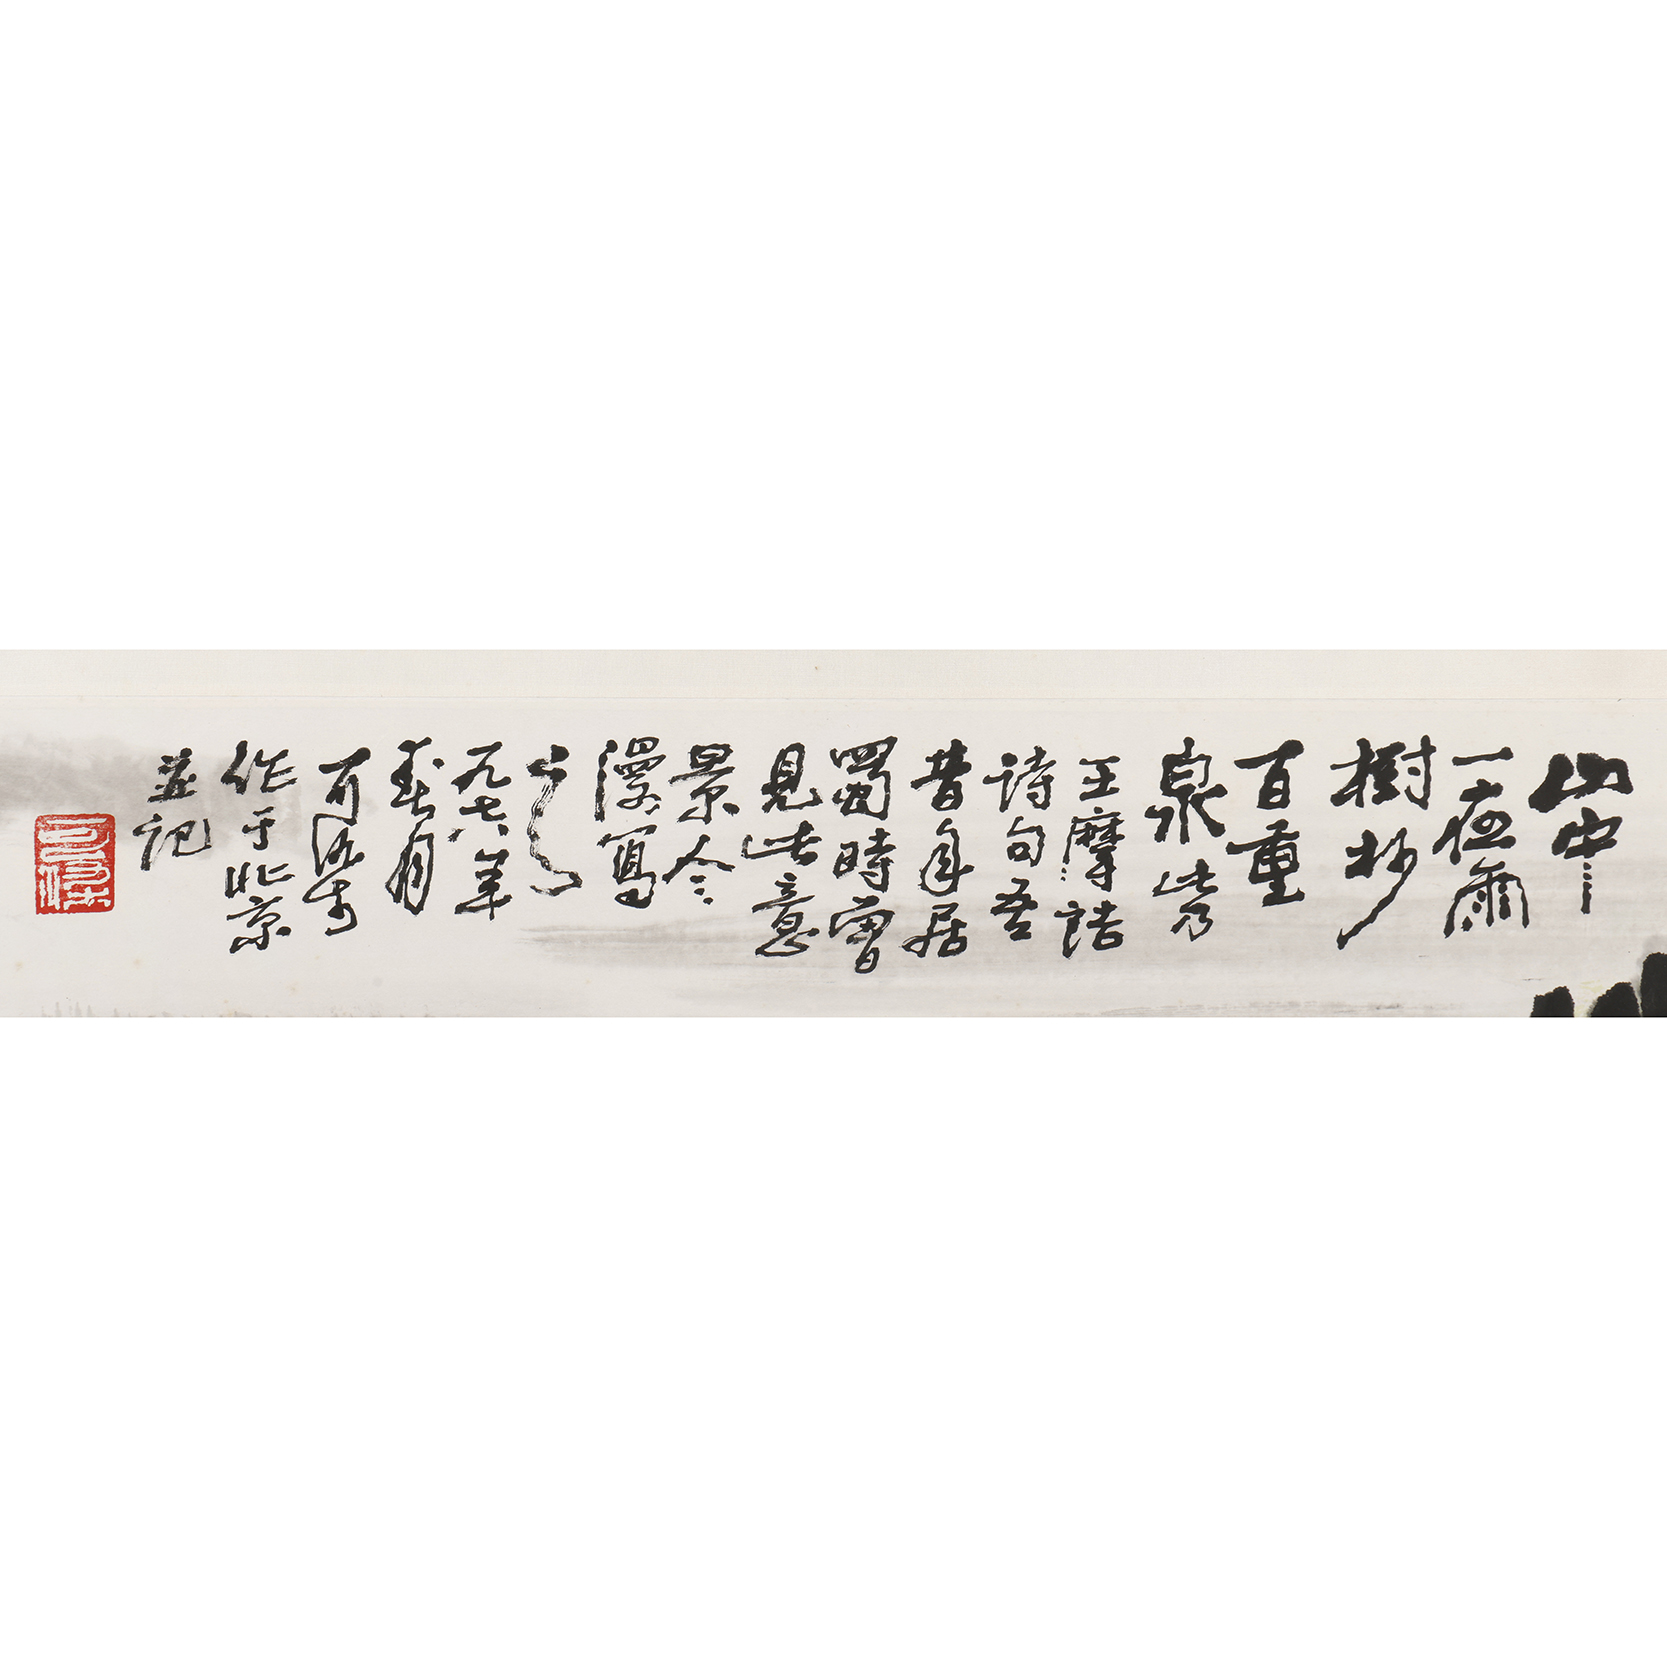 山中
一夜雨
樹杪
百重
泉此乃
王摩詰
詩句吾
昔年居
蜀時曾
見此意
景今
漫寫
之
九七八年
春月
可染
作于北京
並記